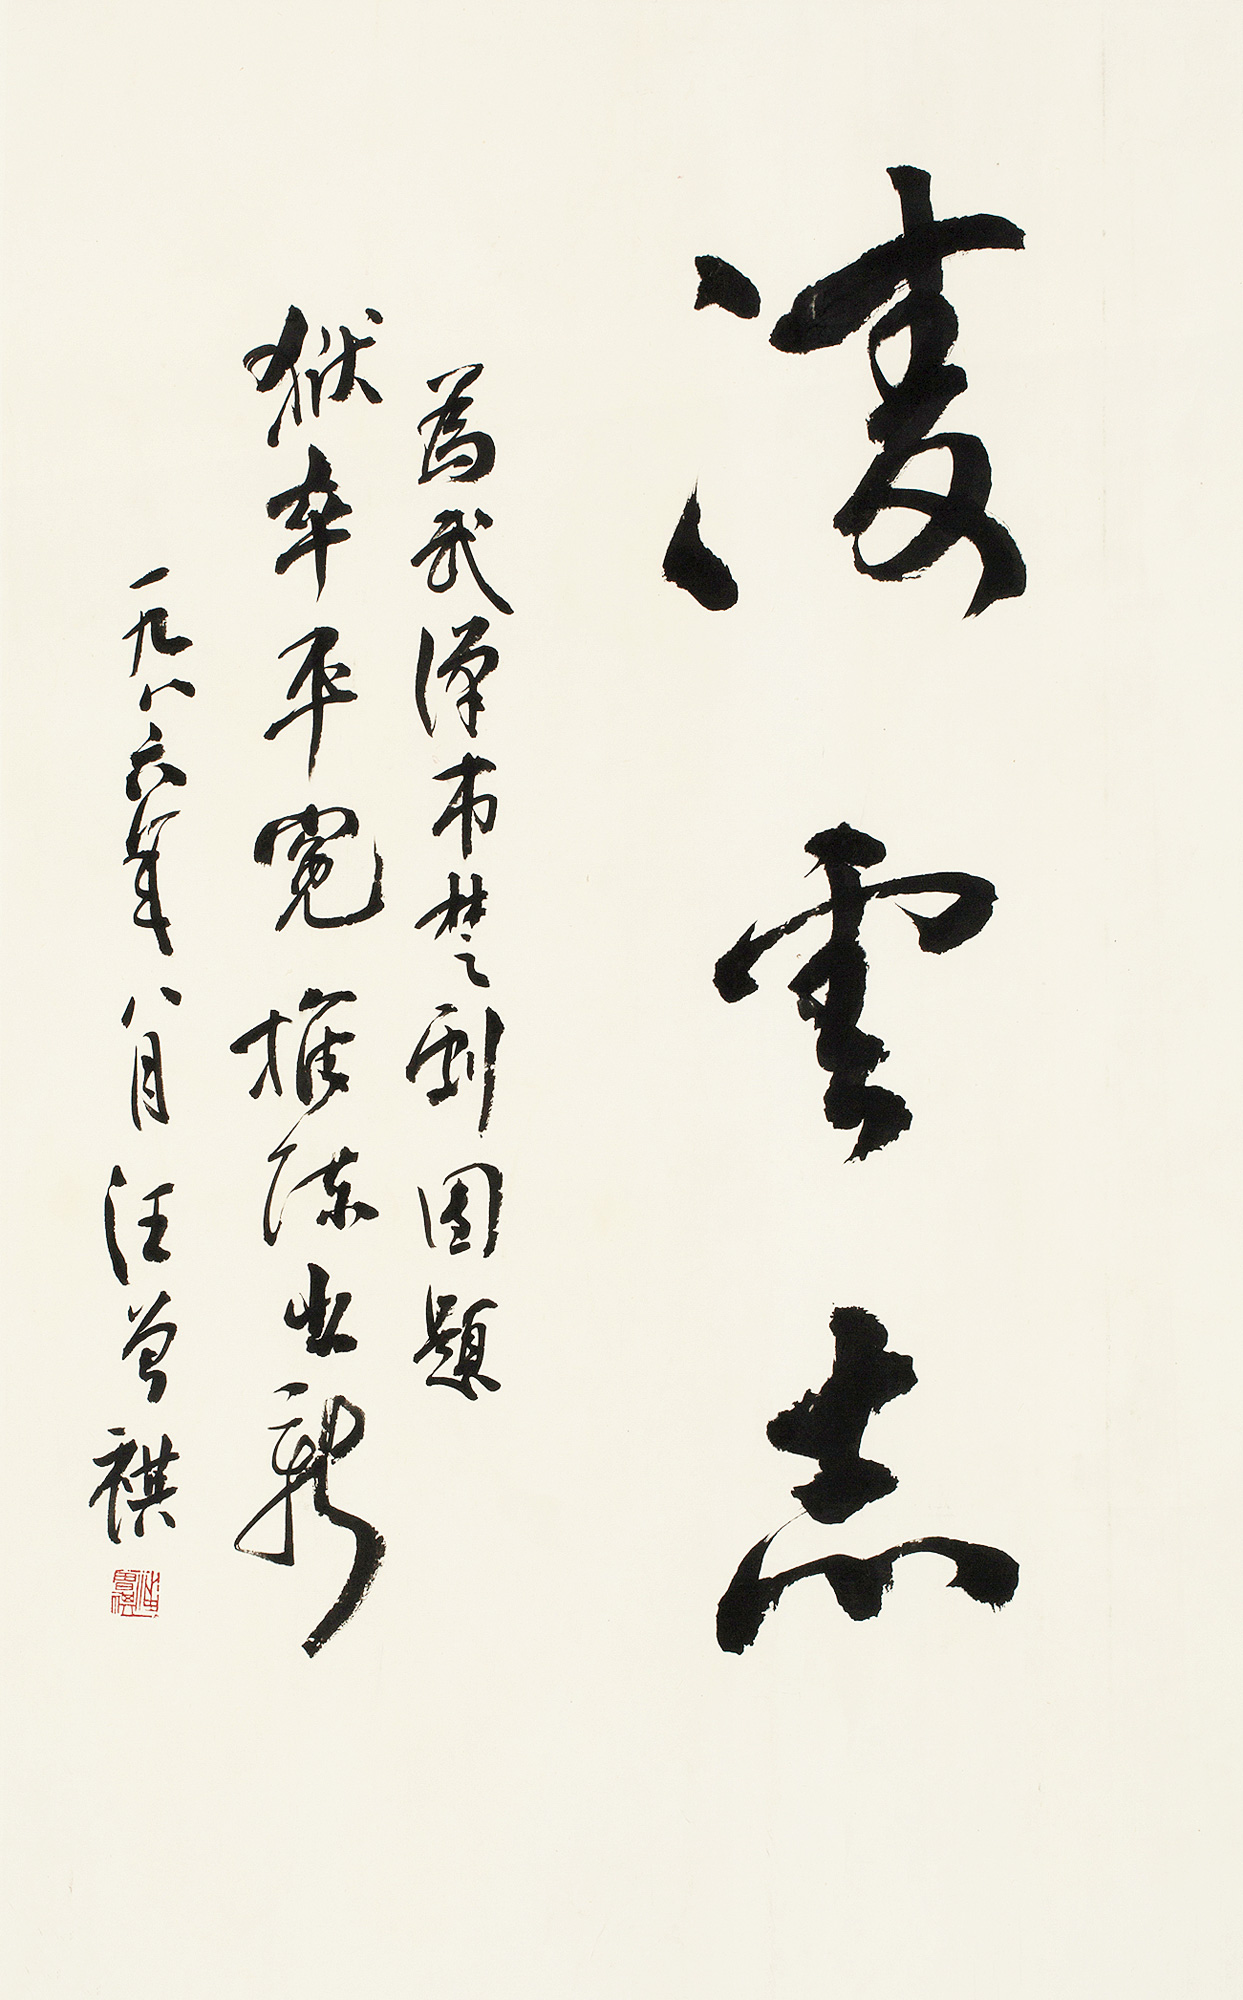 凌雲志
為武漢市楚劇團題
獄卒平冤推陳出新
一九八六年八月汪曾祺